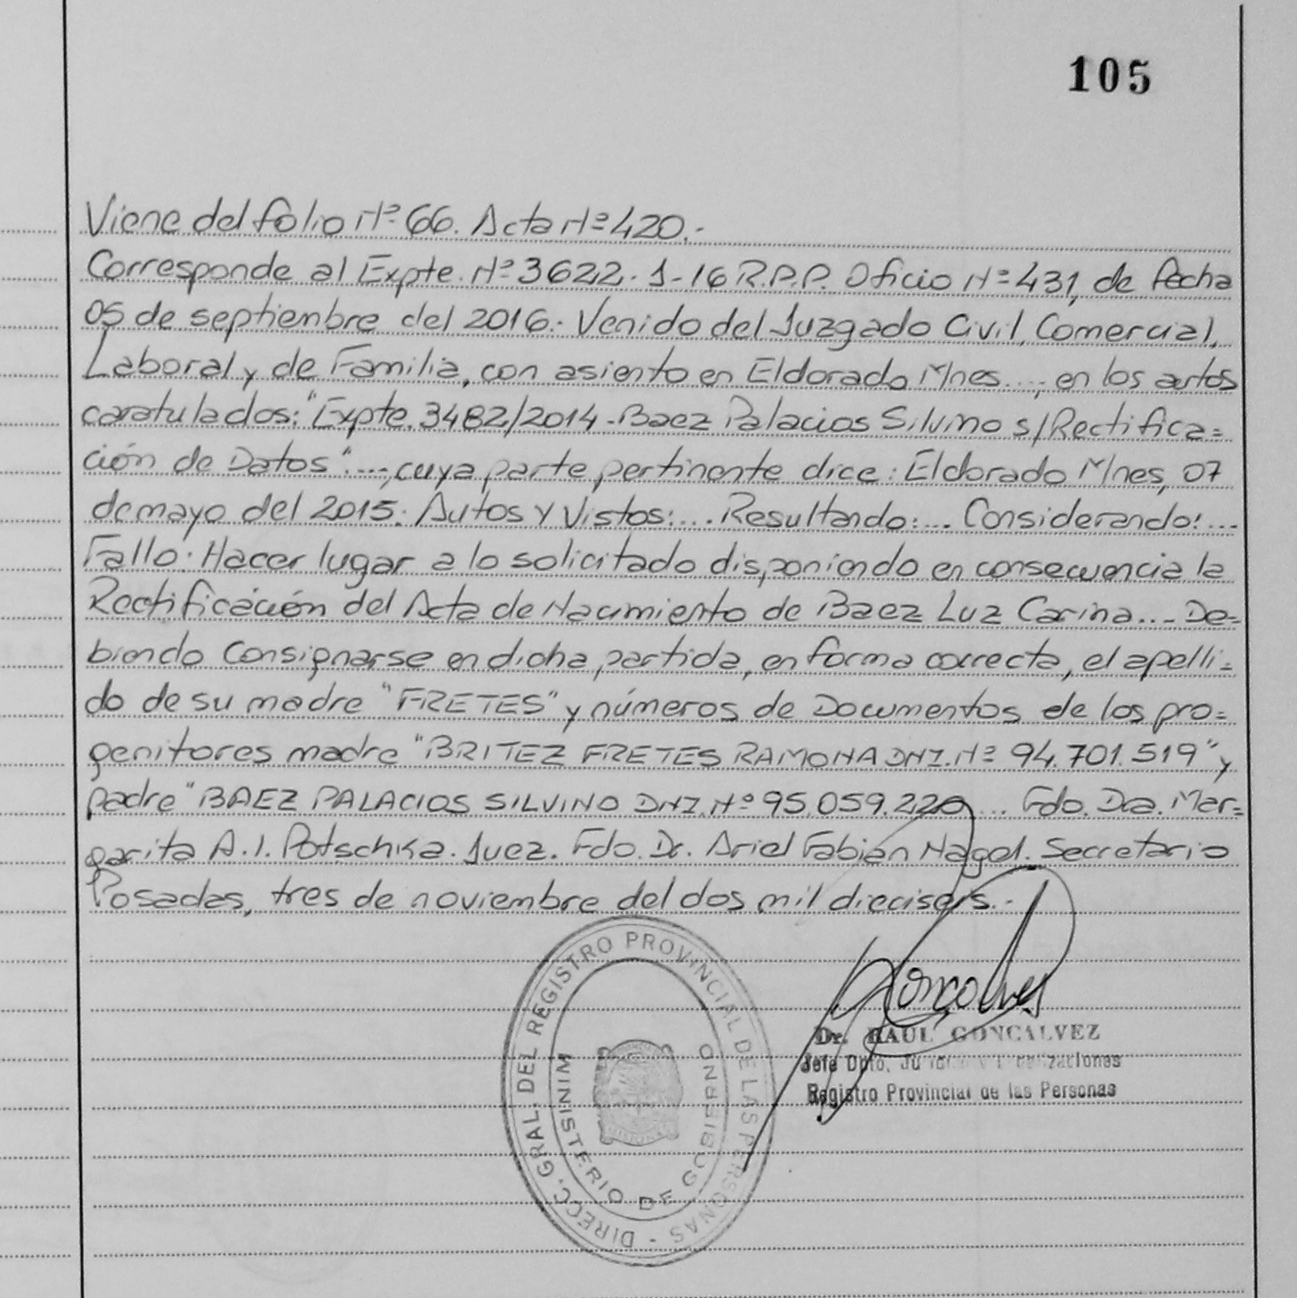 105
Viene del folio Nº 66. Acta Nº 420.-
Corresponde al Expte. Nº 3622-1-16 R.P.P. Oficio Nº 431, de fecha
05 de septiembre del 2016.- Venido del Juzgado Civil, Comercial,
Laboral y de Familia, con asiento en Eldorado Mnes..., en los autos
caratulados: "Expte. 3482/2014-Baez Palacios Silvino s/Rectifica=
ción de Datos"..., cuya parte pertinente dice: Eldorado Mnes, 07
de mayo del 2015. Autos y Vistos:... Resultando:... Considerando:...
Fallo: Hacer lugar a lo solicitado disponiendo en consecuencia la
Rectificación del Acta de Nacimiento de Baez Luz Carina... De=
biendo Consignarse en dicha partida, en forma correcta, el apelli=
do de su madre "FRETES" y números de Documentos de los pro=
genitores madre "BRITEZ FRETES RAMONA DNI. Nº 94.701.519" y
padre "BAEZ PALACIOS SILVINO DNI. Nº 95.059.220... Fdo. Dra. Mar=
garita A.I. Potschka. Juez. Fdo. Dr. Ariel Fabián Nagel. Secretario
Posadas, tres de noviembre del dos mil dieciseis.-
DIRECC. GRAL. DEL REGISTRO PROVINCIAL DE LAS PERSONAS -
MINISTERIO DE GOBIERNO
Goncalves
Dr. RAUL GONCALVEZ
Jefe Dpto.
Registro Provincial de las Personas